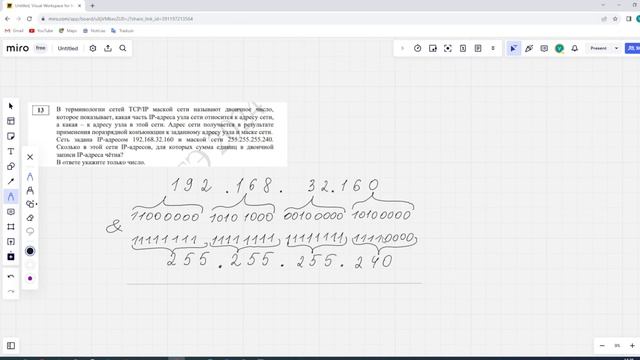 Untitled, Visual Workspace for I
miro.com/app/board/uXjVMkeoZU0=/?share_link_id=391197213564
Gmail
YouTube
Maps
Notícias
Traduzir
miro
free
Untitled
Present
13
В терминологии сетей TCP/IP маской сети называют двоичное число,
которое показывает, какая часть IP-адреса узла сети относится к адресу сети,
а какая – к адресу узла в этой сети. Адрес сети получается в результате
применения поразрядной конъюнкции к заданному адресу узла и маске сети.
Сеть задана IP-адресом 192.168.32.160 и маской сети 255.255.255.240.
Сколько в этой сети IP-адресов, для которых сумма единиц в двоичной
записи IP-адреса чётна?
В ответе укажите только число.
192.168.32.160
11000000 1010 1000 00100000 10100000
&
11111111, 11111111 11111111 11110000
255.255.255.240